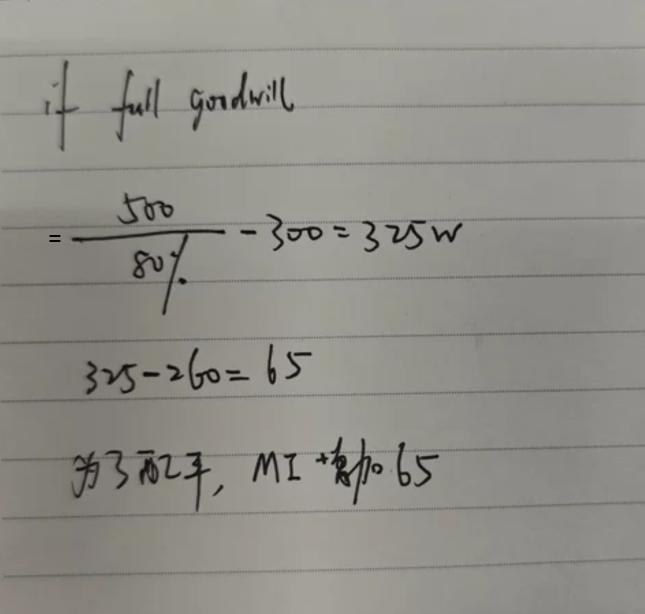 if full goodwill
= 500/80% - 300 = 325W
325 - 260 = 65
为了配平, MI 增加 65